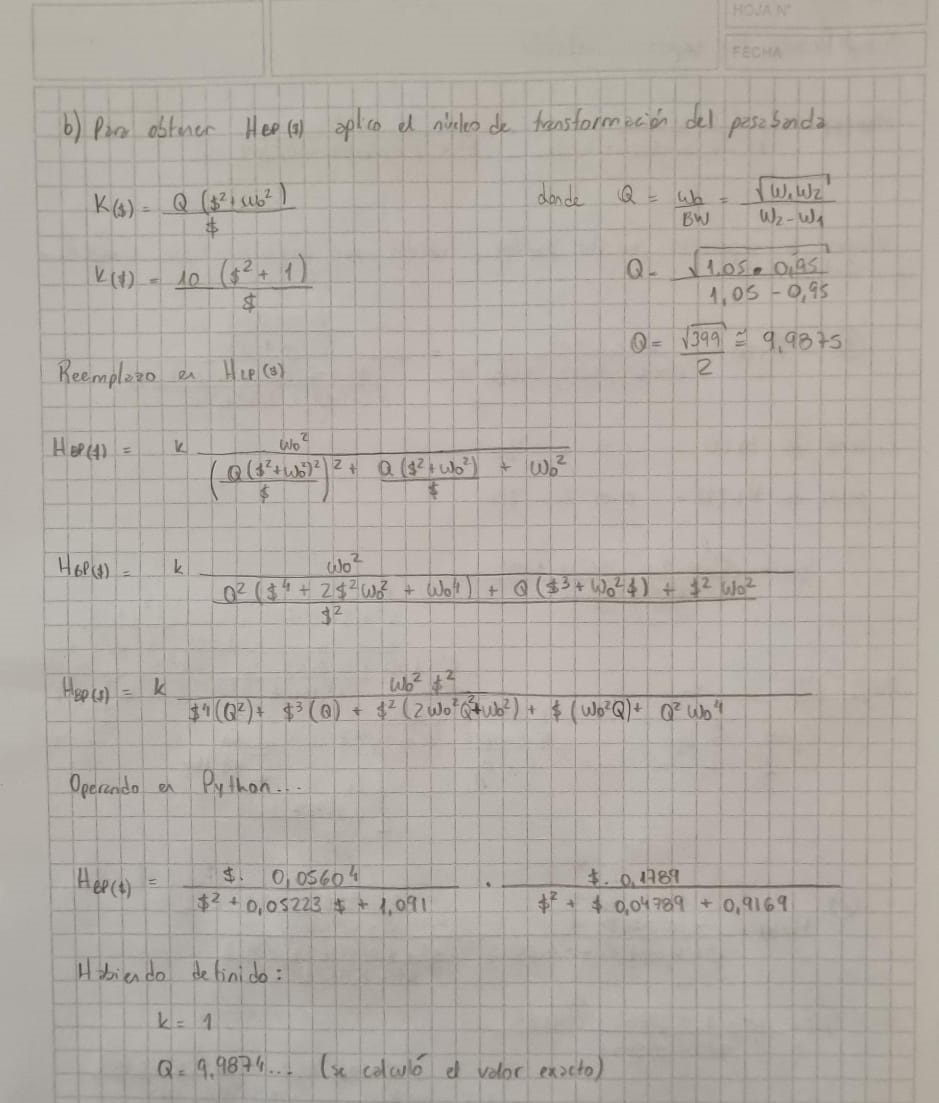 HOJA N°
FECHA
b) Para obtener HBP($) aplico el núcleo de transformación del pasabanda
K($) = Q ($² + ω₀²) / $
donde Q = ω₀ / BW = √(ω₁ω₂) / (ω₂ - ω₁)
K($) = 10 ($² + 1) / $
Q = √(1,05 • 0,95) / (1,05 - 0,95)
Q = √399 / 2 ≅ 9,9875
Reemplazo en HLP($)
HBP($) = k ω₀² / ((Q ($² + ω₀²)² / $)² + Q ($² + ω₀²) / $ + ω₀²)
HBP($) = k ω₀² / ((Q² ($⁴ + 2$²ω₀² + ω₀⁴) + Q ($³ + ω₀²$) + $² ω₀²) / $²)
HBP($) = k ω₀² $² / ($⁴(Q²) + $³(Q) + $²(2ω₀²Q² + ω₀²) + $ (ω₀²Q) + Q² ω₀⁴)
Operando en Python...
HBP($) = $. 0,05604 / ($² + 0,05223 $ + 1,091) . $. 0,1789 / ($² + $ 0,04789 + 0,9169)
Habiendo definido:
k = 1
Q = 9,9874... (se calculó el valor exacto)